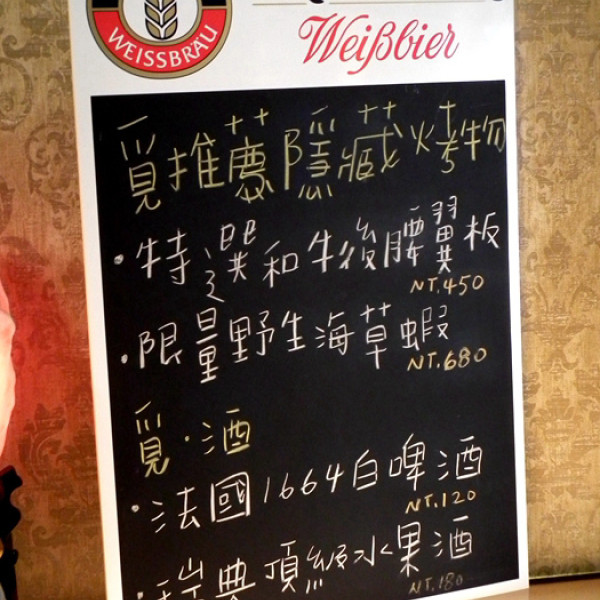 WEISSBRÄU
Weißbier
覓推薦隱藏烤物
·特選和牛後腰翼板
NT.450
·限量野生海草蝦
NT.680
覓·酒
·法國1664白啤酒
NT.120
·瑞典頂級水果酒
NT.180